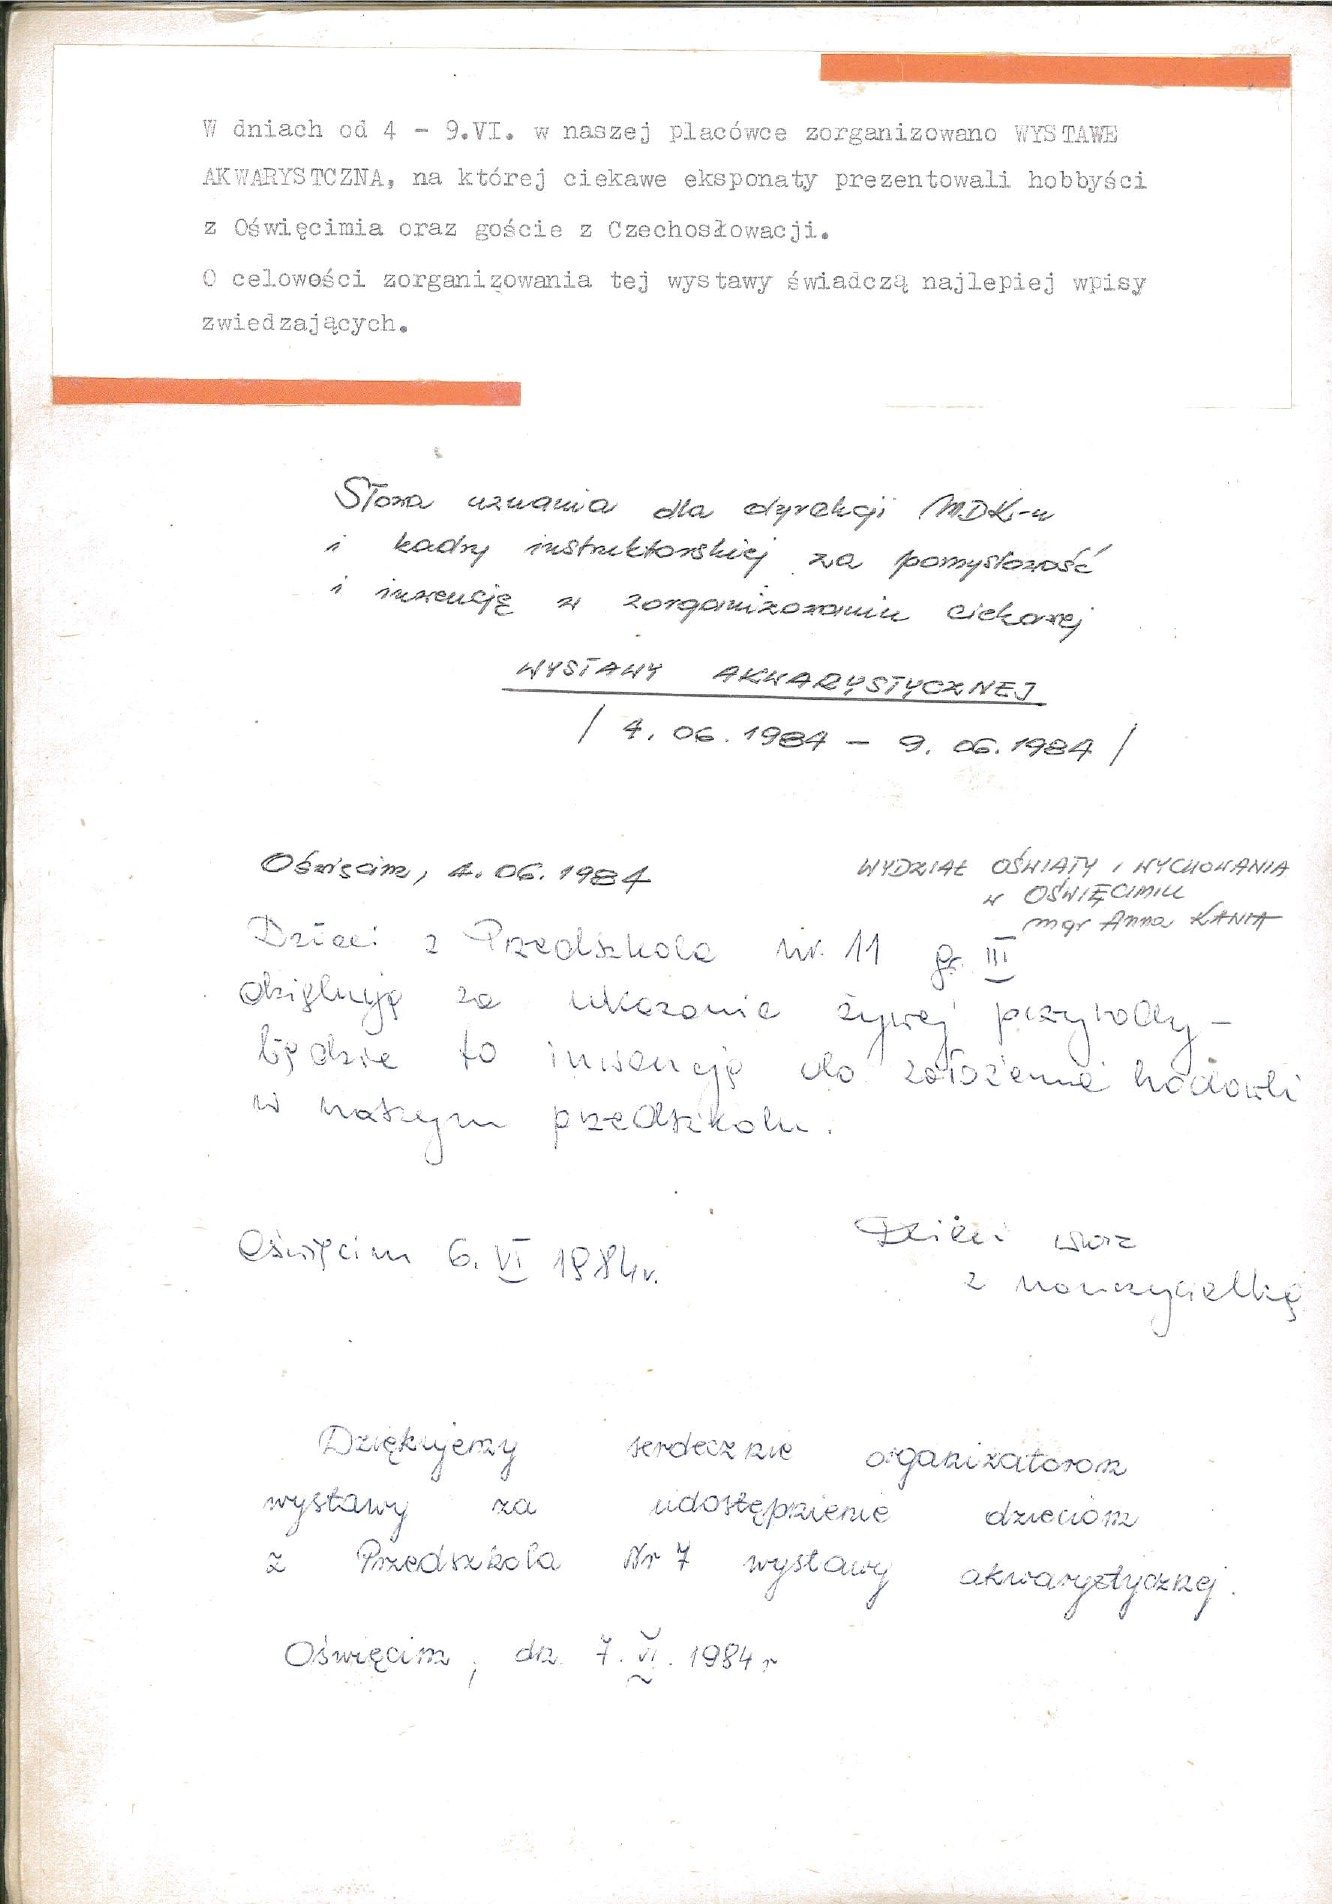 W dniach od 4 - 9.VI. w naszej placówce zorganizowano WYSTAWE
AKWARYSTCZNA, na której ciekawe eksponaty prezentowali hobbyści
z Oświęcimia oraz goście z Czechosłowacji.
O celowości zorganizowania tej wystawy świadczą najlepiej wpisy
zwiedzających.
Słowa uznania dla dyrekcji MDK-u
i kadry instruktorskiej za pomysłowość
i inwencję w zorganizowaniu ciekawej
WYSTAWY AKWARYSTYCZNEJ
/ 4. 06. 1984 - 9. 06. 1984 /
Oświęcim, 4. 06. 1984
WYDZIAŁ OŚWIATY i WYCHOWANIA
w OŚWIĘCIMIU
mgr Anna KANIA
Dzieci z Przedszkola nr. 11 gr. III
dziękuję za ukazanie żywej przyrody -
będzie to inwencją do założenia hodowli
w naszym przedszkolu.
Oświęcim 6. VI 1984r.
Dzieci wraz
z nauczycielką
Dziękujemy serdecznie organizatorom
wystawy za udostępnienie dzieciom
z Przedszkola Nr 7 wystawy akwarystycznej.
Oświęcim, dn. 7. VI. 1984 r